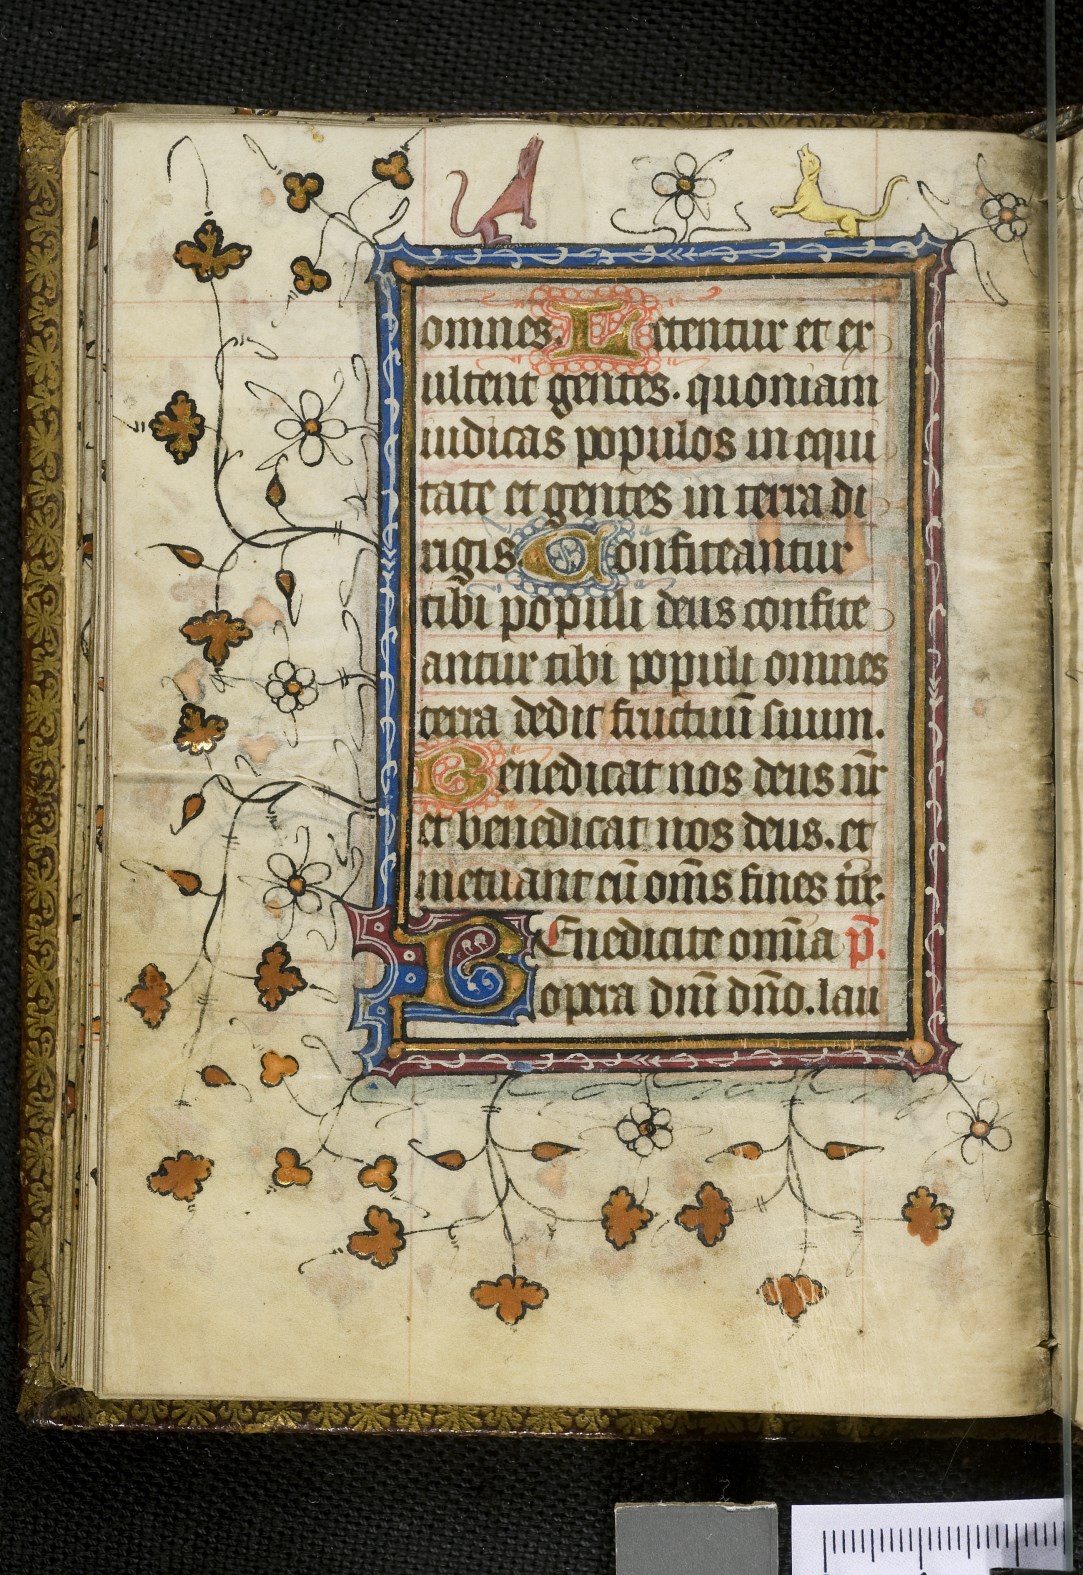 omnes. Letentur et ex
ultent gentes. quoniam
iudicas populos in equi
tate et gentes in terra di
rigis. Confiteantur
tibi populi deus confite
antur tibi populi omnes
terra dedit fructuū suum.
Benedicat nos deus nr̄
et benedicat nos deus. et
metuant eū om̄s fines tr̄e.
BEnedicite omīa p̄.
opera dnī dn̄o. lau